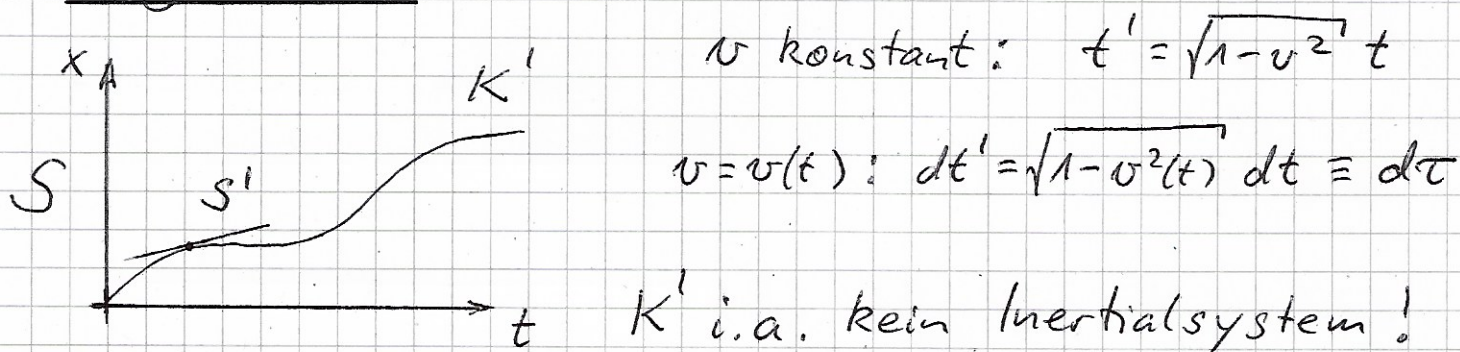 v konstant: t' = √(1-v²) t
x
K'
v = v(t): dt' = √(1-v²(t)) dt ≡ dτ
S
S'
t
K' i.a. kein Inertialsystem!